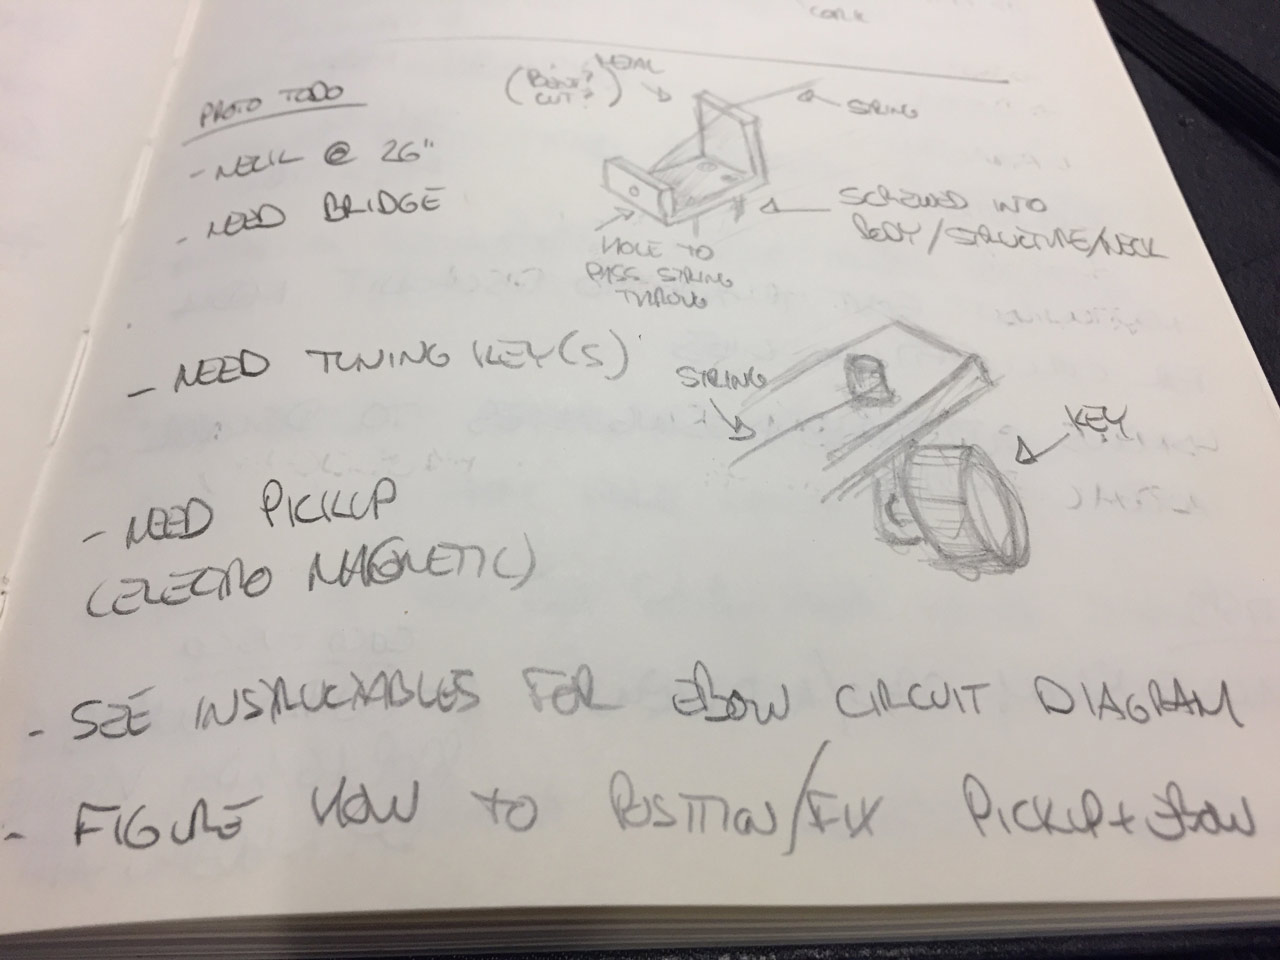 CORK
PROTO TODO
- NECK @ 26"
- NEED BRIDGE
METAL
(BEND?
CUT?)
STRING
SCREWED INTO
BODY/STRUCTURE/NECK
HOLE TO
PASS STRING
THROUG
- NEED TUNING KEY(S)
STRING
KEY
- NEED PICKUP
(ELECTRO MAGNETIC)
- SEE INSTRUCTABLES FOR EBOW CIRCUIT DIAGRAM
- FIGURE HOW TO POSITION/FIX PICKUP + EBOW